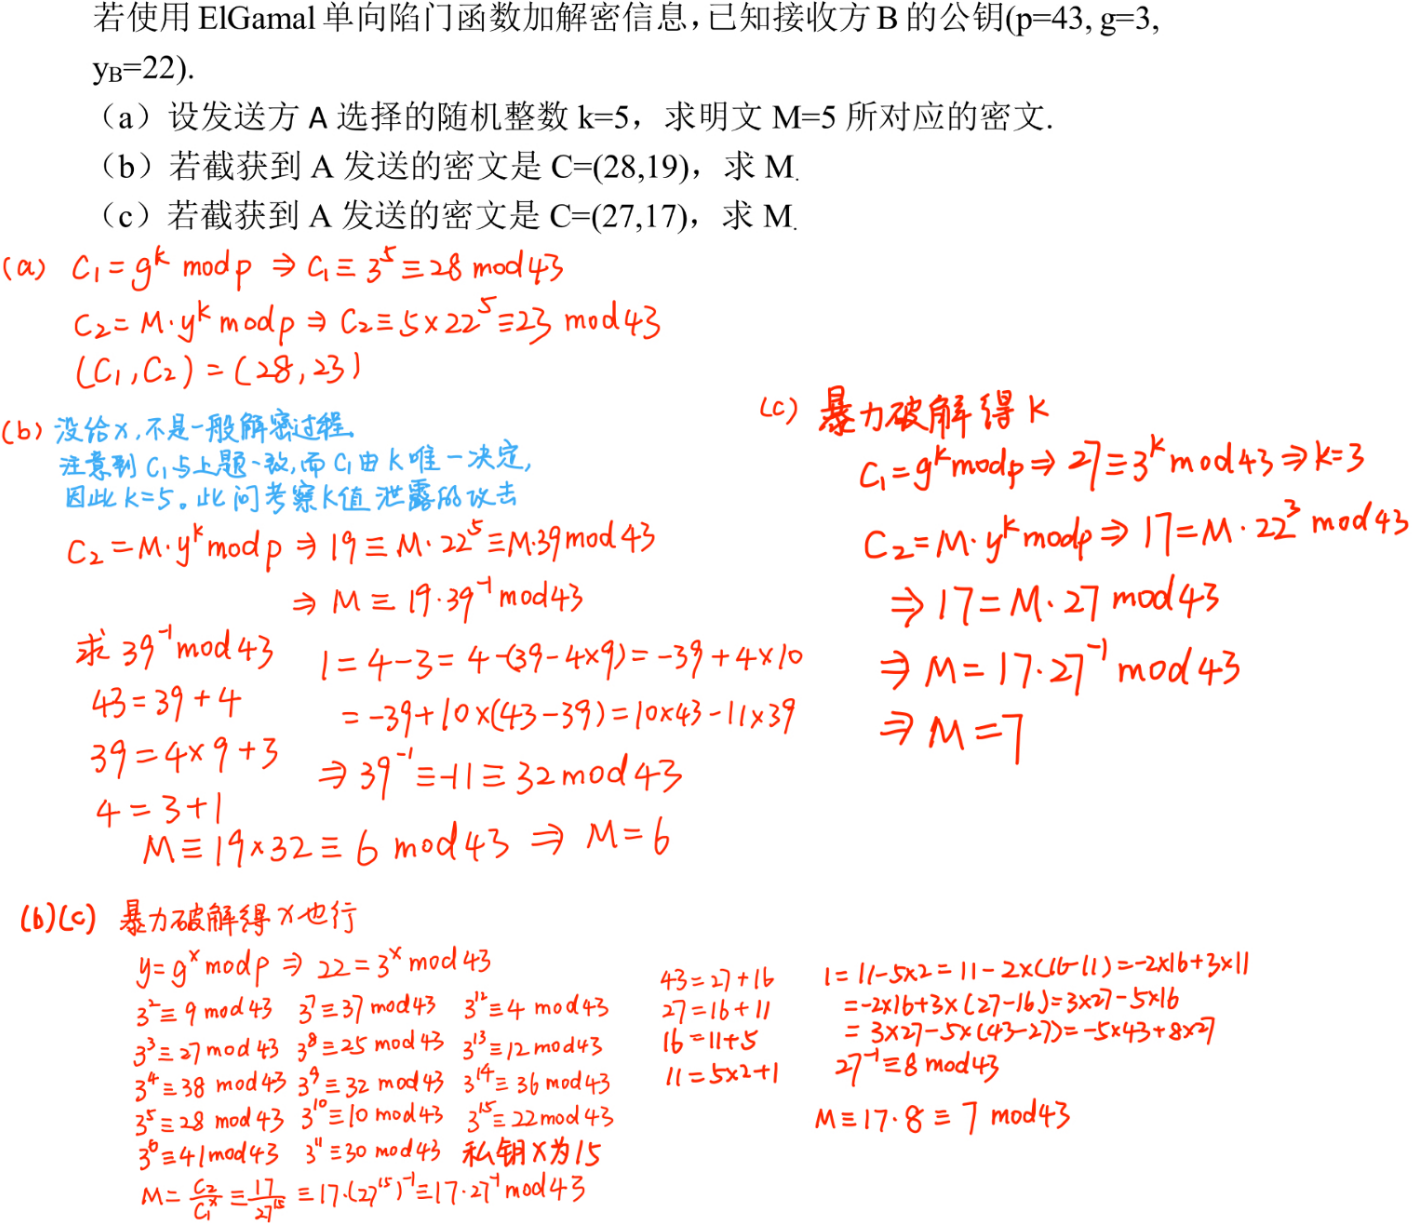 若使用 ElGamal 单向陷门函数加解密信息，已知接收方 B 的公钥(p=43, g=3,
yB=22).
（a）设发送方 A 选择的随机整数 k=5，求明文 M=5 所对应的密文.
（b）若截获到 A 发送的密文是 C=(28,19)，求 M.
（c）若截获到 A 发送的密文是 C=(27,17)，求 M.
(a) C₁=gᵏ mod p ⇒ C₁≡3⁵≡28 mod 43
C₂=M·yᵏ mod p ⇒ C₂≡5×22⁵≡23 mod 43
(C₁,C₂)=(28,23)
(b) 没给x,不是一般解密过程.
注意到 C₁与上题一致,而 C₁由 k 唯一决定,
因此 k=5。此问考察k值泄露的攻击
C₂=M·yᵏ mod p ⇒ 19≡M·22⁵≡M·39 mod 43
⇒ M≡19·39⁻¹ mod 43
求 39⁻¹ mod 43
43=39+4
39=4×9+3
4=3+1
1=4-3=4-(39-4×9)=-39+4×10
=-39+10×(43-39)=10×43-11×39
⇒ 39⁻¹≡-11≡32 mod 43
M≡19×32≡6 mod 43 ⇒ M=6
(c) 暴力破解得 k
C₁=gᵏ mod p ⇒ 27≡3ᵏ mod 43 ⇒ k=3
C₂=M·yᵏ mod p ⇒ 17=M·22³ mod 43
⇒ 17=M·27 mod 43
⇒ M=17·27⁻¹ mod 43
⇒ M=7
(b)(c) 暴力破解得 x 也行
y=gˣ mod p ⇒ 22=3ˣ mod 43
3²≡9 mod 43 3⁷≡37 mod 43 3¹²≡4 mod 43
3³≡27 mod 43 3⁸≡25 mod 43 3¹³≡12 mod 43
3⁴≡38 mod 43 3⁹≡32 mod 43 3¹⁴≡36 mod 43
3⁵≡28 mod 43 3¹⁰≡10 mod 43 3¹⁵≡22 mod 43
3⁶≡41 mod 43 3¹¹≡30 mod 43 私钥 x为15
M=C₂/C₁ˣ≡17/27¹⁵≡17·(27¹⁵)⁻¹≡17·27⁻¹ mod 43
43=27+16
27=16+11
16=11+5
11=5×2+1
1=11-5×2=11-2×(16-11)=-2×16+3×11
=-2×16+3×(27-16)=3×27-5×16
=3×27-5×(43-27)=-5×43+8×27
27⁻¹≡8 mod 43
M≡17·8≡7 mod 43